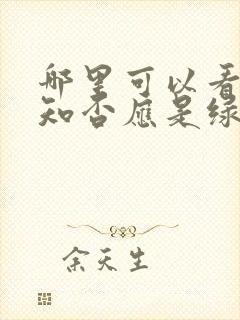 哪里可以看
知否应是绿
余天生